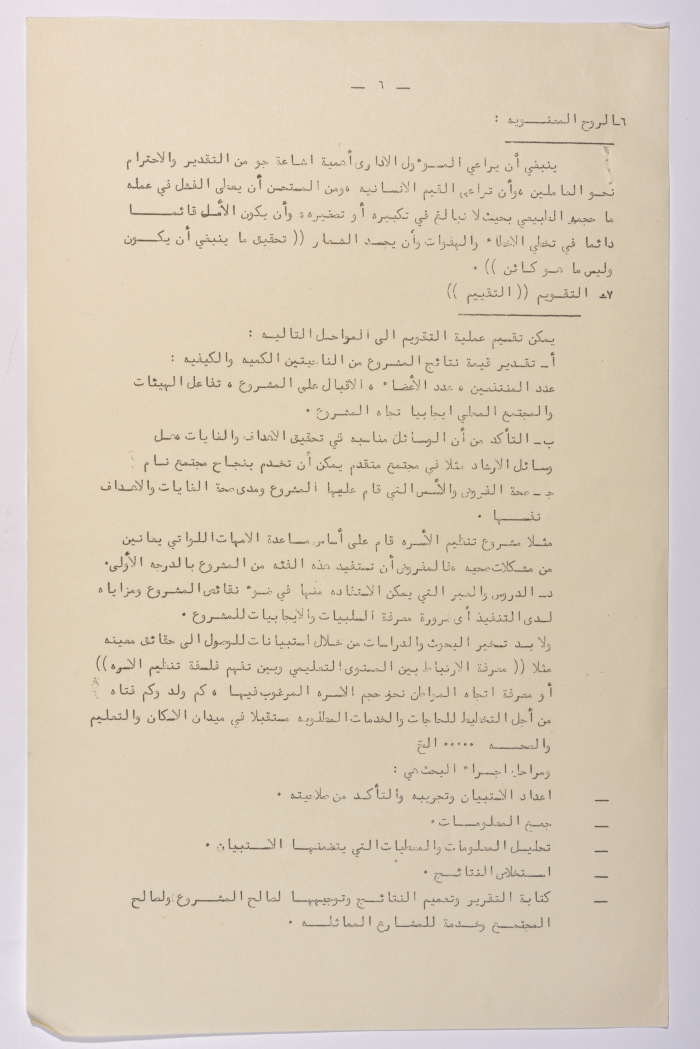 — ٦ —
٦ـ الروح المعنويه :
ينبغي أن يراعي المسوءول الادارى أهمية اشاعة جو من التقدير والاحترام
نحو العاملين ،وأن تراعى القيم الانسانيه ،ومن المستحسن أن يعطى الفشل في عمله
ما حجمه الطبيعي بحيث لا نبالغ في تكبيره أو تصغيره، وأن يكون الأمل قائمــا
دائما في تخطي الاخطاء والهفوات وأن يجسد الشعار (( تحقيق ما ينبغي أن يكــون
وليس ما هــو كـائن )) .
٧ـ التقـويم (( التقييم ))
يمكن تقسيم عملية التقويم الى المراحل التاليــه :
أ ـ تقـدير قيمة نتائج المشروع من الناحيتين الكميه والكيفيه :
عدد المنتفعين ، عدد الأعضاء ، الاقبال على المشروع ، تفاعل الهيئات
والمجتمع المحلي ايجابيا تجاه المشروع .
ب ـ التأكد من أن الوسائل مناسبه في تحقيق الاهداف والغايات فهـل
وسائل الارشاد مثلا في مجتمع متقدم يمكن أن تخدم بنجاح مجتمع نام
جـ ـ صحة الفروض والأسس التي قام عليها المشروع ومدى صحة الغايات والاهداف
نفســها .
مثـلا مشروع تنظيم الأسره قام على أساس مساعدة الامهات اللواتي يعانين
من مشكلات صحيه ،فالمفروض أن تستفيد هذه الفئه من المشروع بالدرجه الأولى.
د ـ الدروس والعبر التي يمكن الاستفاده منها في ضوء نقائص المشروع ومزاياه
لـدى التنفيذ أى ضرورة معرفة السلبيات والايجابيات للمشروع .
ولا بد تسخير البحوث والدراسات من خلال استبيانات للوصول الى حقائق معينه
مثلا (( معرفة الارتباط بين المستوى التعليمي وبين تفهم فلسفة تنظيم الاسره ))
أو معرفة اتجاه المواطن نحو حجم الاسره المرغوب فيهــا ، كم ولد وكم فتاه
من أجل التخطيط للحاجات والخدمات المطلوبه مستقبلا في ميدان الاسكان والتعليم
والصحــه ..... الخ
ومراحل اجـراء البحث هي :
— اعداد الاستبيان وتجريبه والتأكـد من صلاحيته .
— جمـع المعلومــات .
— تحليـل المعلومات والمعطيات التي يتضمنهــا الاسـتبيان .
— اسـتخلاص النتائــج .
— كتابة التقرير وتعميم النتائــج وتوجيههــا لصالح المشــروع ولصالح
المجتمــع وخدمة للمشاريع المماثلــه .